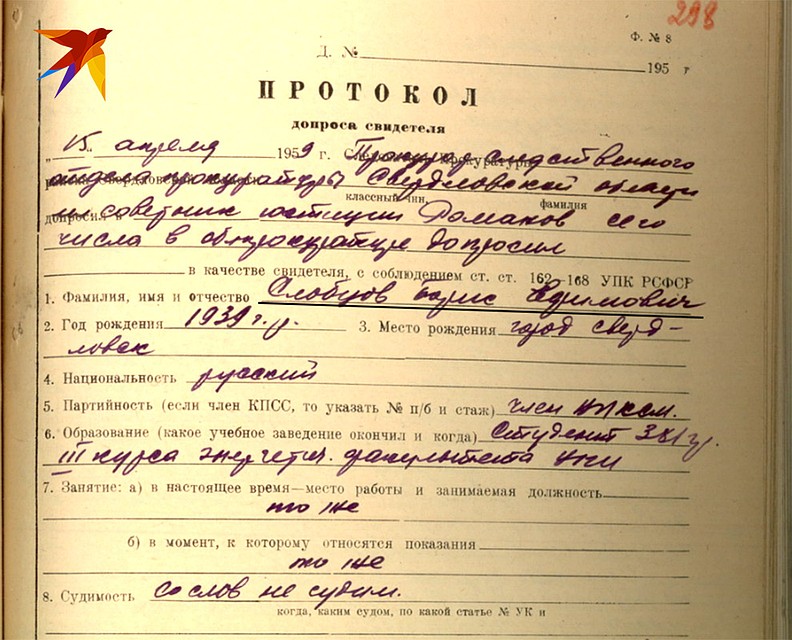 298
Ф. № 8
Д. №
195 г
ПРОТОКОЛ
допроса свидетеля
„15„ апреля 1959 г. Прокурор следственного
отдела прокуратуры Свердловской области
классный чин, фамилия
допросил советник юстиции Романов сего
числа в облпрокуратуре допросил
в качестве свидетеля, с соблюдением ст. ст. 162—168 УПК РСФСР
1. Фамилия, имя и отчество Слобцов Борис Ефимович
2. Год рождения 1939 г. р. 3. Место рождения город Сверд-
ловск
4. Национальность русский
5. Партийность (если член КПСС, то указать № п/б и стаж) член ВЛКСМ.
6. Образование (какое учебное заведение окончил и когда) Студент 381 гр.
III курса энергетич. факультета УПИ
7. Занятие: а) в настоящее время—место работы и занимаемая должность
то же
б) в момент, к которому относятся показания
то же
8. Судимость со слов не судим.
когда, каким судом, по какой статье № УК и